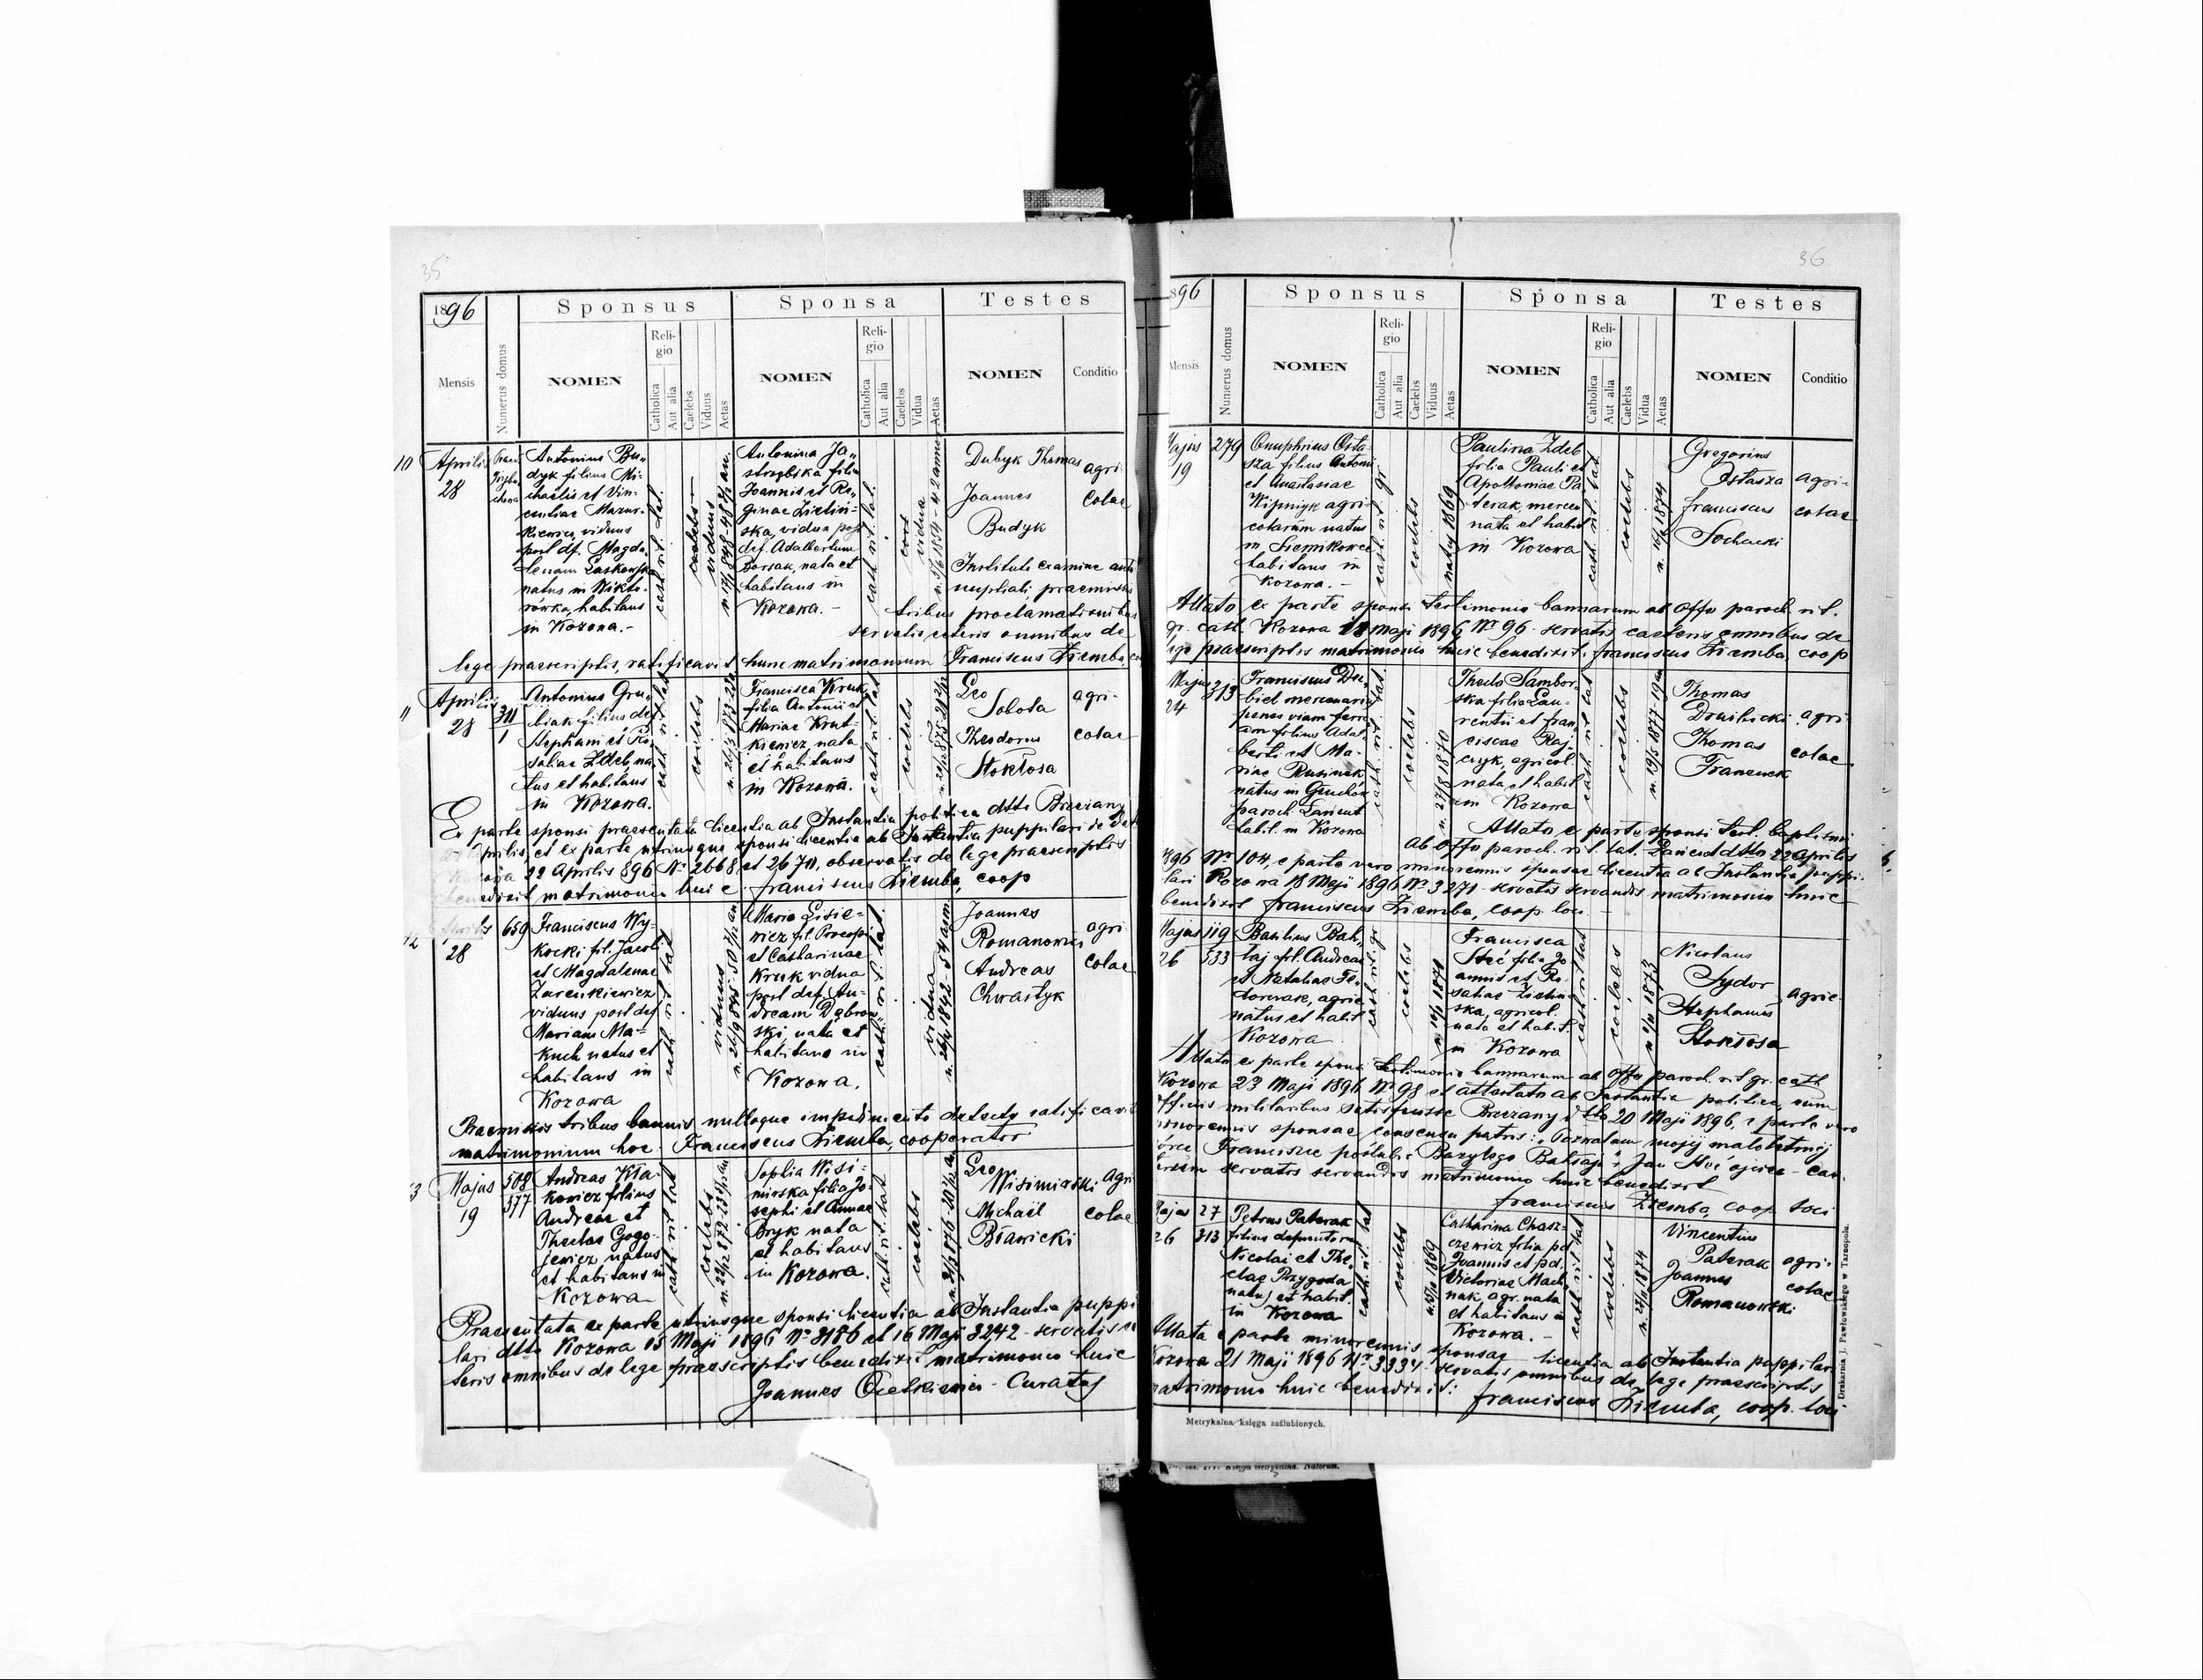 35
1896
Sponsus
Sponsa
Testes
Mensis
Numerus domus
NOMEN
Religio
Catholica
Aut alia
Caelebs
Viduus
Aetas
NOMEN
Religio
Catholica
Aut alia
Caelebs
Vidua
Aetas
NOMEN
Conditio
10
Aprilis
28
Antonius Bu„
dyk filius Mi-
chaelis et Vin-
centiae Mazur-
kiewicz, viduus
post df. Magda„
lenam Laskowska
natus in Wikto-
rówka, habitans
in Kozowa.-
cath. rit. lat.
viduus
Antonina Ja„
strzębska filia
Joannis et Re„
ginae Zielin-
ska, vidua post
def. Adalbertum
Borsak, nata et
habitans in
Kozowa.-
cath. rit. lat.
vidua
Dubyk Thomas
Joannes
Budyk
agri-
colae
Instituto examine ante
nuptiali, praemissis
tribus proclamationibus
servatis ceteris omnibus de
lege praescriptis, ratificavit hunc matrimonium Franciscus Ziemba,
11
Aprilis
28
311
1
Antonius Gru„
biak filius def
Stephani et Ro„
saliae Zdeb, na„
tus et habitans
in Kozowa.
cath rit lat
coelebs
Francisca Kruk
filia Antonii et
Mariae Krut-
kiewicz, nata
et habitans
in Kozowa.
cath rit lat
coelebs
Leo
Sobota
Theodorus
Stokłosa
agri-
colae
Ex parte sponsi praesentata licentia ab Instantia politica dtto Brzezany
Aprilis, et ex parte utriusque sponsi licentia ab Instantia puppilari de
Kozowa 22 Aprilis 896 No 2668 et 2670, observatis de lege praescriptis
benedixit matrimonio huic Franciscus Ziemba, coop
12
Aprilis
28
659
Franciscus Wy-
kocki fil. Jacobi
et Magdalenae
Zarenkiewicz
viduus post def
Mariam Ma-
kuch natus et
habitans in
Kozowa
cath rit lat
viduus
Maria Lisie-
wicz fil. Procopi
et Catharinae
Kruk vidua
post def. An-
dream Dąbrow„
ski, nata et
habitans in
Kozowa.
cath. rit. lat.
vidua
Joannes
Romanowicz
Andreas
Chwastyk
agri-
colae
Praemissis tribus bannis nulloque impedimento detecto ratificavit
matrimonium hoc. Franciscus Ziemba, cooperator
13
Majus
19
508
577
Andreas Kła-
kowicz filius
Andreae et
Theclae Gogo-
jewicz natus
et habitans in
Kozowa
cath rit lat
coelebs
Sophia Wisi-
mirska filia Jo-
sephi et Annae
Bryk nata
et habitans
in Kozowa.
cath rit lat
coelebs
Leo
Wisimirski
Michael
Bławicki
agri
colae
Praesentata ex parte utriusque sponsi licentia ab Instantia puppi
lari dtto Kozowa 15 Maji 1896 No 3186 et 16 Maji 3242 - servatis ce
teris omnibus de lege praescriptis benedixit matrimonio huic
Joannes Ocetkiewicz - Curatus
36
1896
Sponsus
Sponsa
Testes
Mensis
Numerus domus
NOMEN
Religio
Catholica
Aut alia
Caelebs
Viduus
Aetas
NOMEN
Religio
Catholica
Aut alia
Caelebs
Vidua
Aetas
NOMEN
Conditio
Majus
19
279
Onuphrius Osta-
sza filius Antonii
et Anastasiae
Kipniyk agri-
colarum natus
in Siemikowce
habitans in
Kozowa.-
cath. rit. gr.
coelebs
natus 1869
Paulina Zdeb
filia Pauli et
Apolloniae Pa
terak, mercen
nata et habit
in Kozowa
cath. rit. lat.
coelebs
n. 16/6 1874
Gregorius
Ostasza
Franciscus
Sochacki
agri-
colae
Allato ex parte sponsi testimonio bannarum ab Offo paroch rit.
gr. cath. Kozowa 18 Maji 1896 No 96 - servatis caeteris omnibus de
lege praescriptis matrimonio huic benedixit. Franciscus Ziemba, coop
Majus
24
313
Franciscus Du„
biel mercenari
penes viam ferre
am filius Adal„
berti et Ma-
riae Rusinek,
natus in Głuchów
paroch Łańcut
habit. in Kozowa
cath. rit. lat.
coelebs
n. 27/8 1870
Thecla Sambor-
ska filia Lau-
rentii et Fran„
ciscae Raj-
czyk, agricol.
nata et habit
in Kozowa
cath. rit. lat
coelebs
n. 19/5 1877 - 19 an
Thomas
Drailicki
Thomas
Franczuk
agri-
colae
Allato e parte sponsi test. baptismi
ab Offo paroch. rit. lat. Łańcut dtto 22 Aprilis
896 No 104, e parte vero minorennis sponsae licentia ab Instantia puppi-
lari Kozowa 18 Maji 1896 No 3271 - servatis servandis matrimonio huic
benedixit Franciscus Ziemba, coop loci -
Majus
26
119
533
Basilius Bah„
taj fil. Andreae
et Nataliae Fe„
dorczak, agric
natus et habit
Kozowa
cath rit. gr
coelebs
Francisca
Stec filia Jo
annis et Ro
saliae Zielin
ska, agricol.
nata et habit.
in Kozowa
cath rit lat
coelebs
Nicolaus
Sydor
Stephanus
Stokłosa
agric
Allato ex parte sponsi testimonio bannarum ab Offo paroch. rit gr. cath
Kozowa 23 Maji 1896 No 98 et attestato ab Instantia politica, eum
officiis militaribus satisfecisse Brzezany dtto 20 Maji 1896, e parte vero
minorennis sponsae consensu patris: „Pozwalam mojej małoletniej
córce Franciszce poślubić Bazylego Bahtaja" Jan Stec ojciec - cae-
terum servatis servandis matrimonio huic benedixit
Franciscus Ziemba, coop loci
Majus
26
27
313
Petrus Paterak
filius defunctorum
Nicolai et The„
clae Przygoda
natus et habit.
in Kozowa
cath rit. lat
coelebs
Catharina Chasz-
czewicz filia pd
Joannis et pd.
Victoriae Mach
nak, agr. nata
et habitans in
Kozowa.-
cath rit lat
coelebs
Vincentius
Paterak
Joannes
Romanowski
agri-
colae
Allata e parte minorennis sponsae licentia ab Instantia puppilari
Kozowa 21 Maji 1896 No 3334 - servatis omnibus de lege praescriptis
matrimonio huic benedixit: Franciscus Ziemba, coop. loci
Metrykalna księga zaślubionych.
Drukarnia J. Pawłowskiego w Tarnopolu.